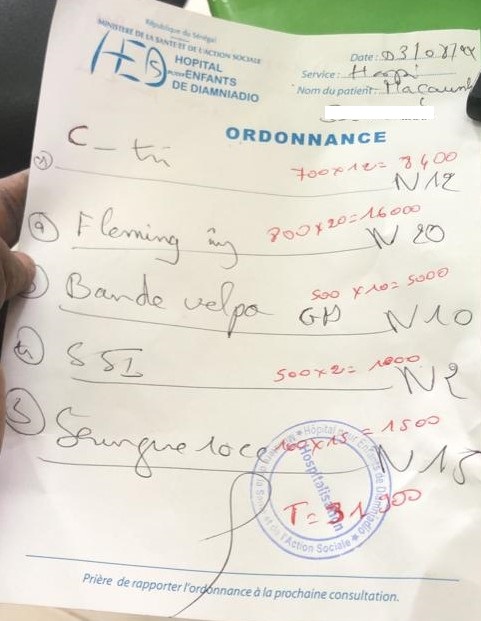 République du Sénégal
MINISTERE DE LA SANTE ET DE L'ACTION SOCIALE
HOPITAL
POUR ENFANTS
DE DIAMNIADIO
Date :
Service : Hospi
Nom du patient :
ORDONNANCE
C_tri
700x12= 8400
N12
Fleming inj
800x20=16000
N 20
Bande velpo GM
500 x10= 5000
N10
SSI
500x2= 1000
N2
Seringue 10cc
100x15 = 1500
N 15
T= 31 900
Hôpital pour Enfants de Diamniadio
Hospitalisation
Ministère de la Santé et de l'Action Sociale
Prière de rapporter l'ordonnance à la prochaine consultation.